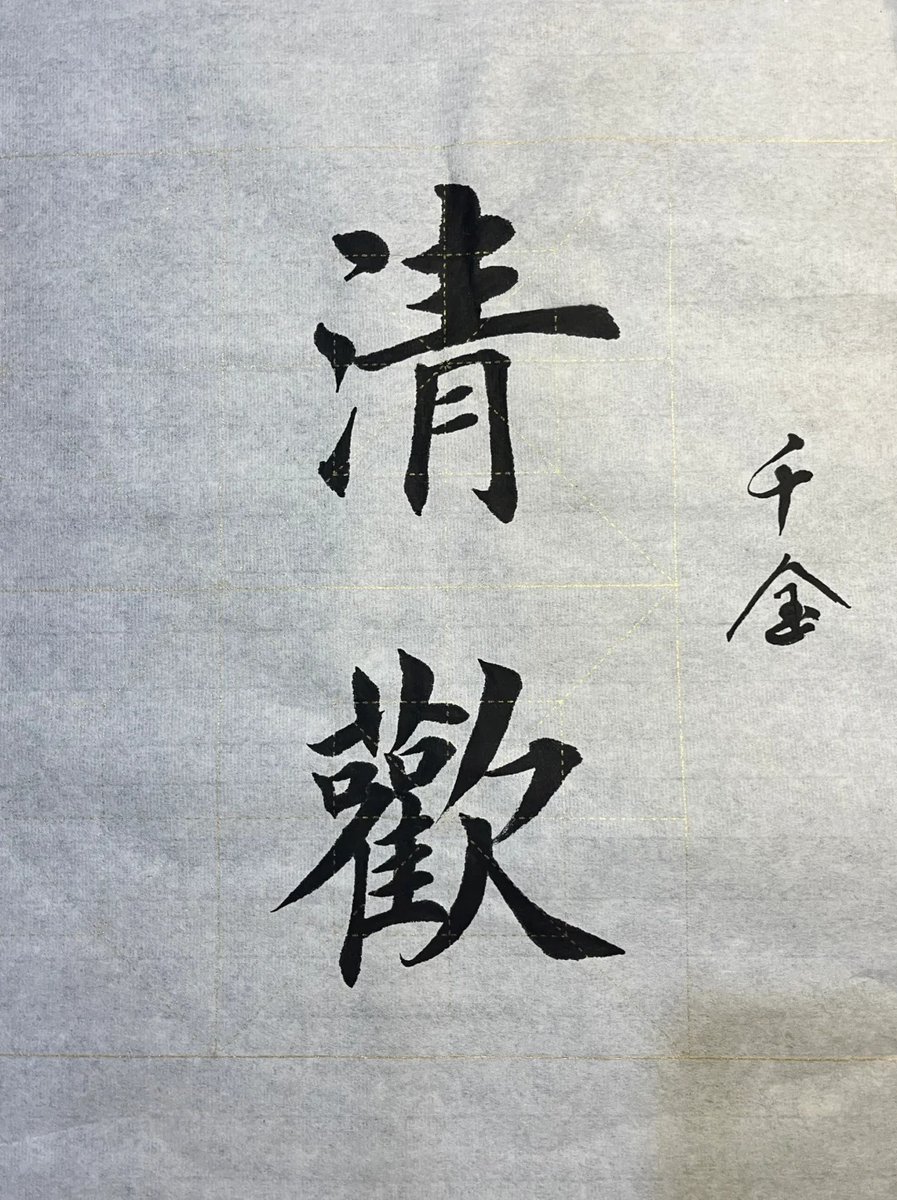 千金
清歡